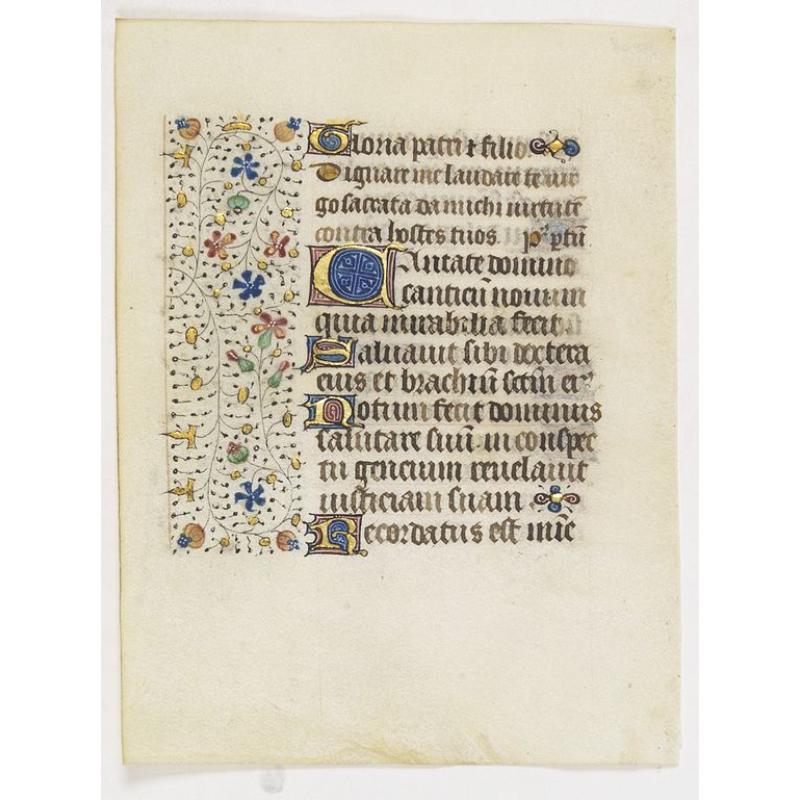 Gloria patri et filio.
Dignare me laudare te vir
go sacrata da michi virtute
contra hostes tuos. ps
Cantate domino
canticū novum
quia mirabilia fecit
Salvavit sibi dextera
eius et brachiū sctm ei⁹
Notum fecit dominus
salutare suū in conspec
tu gencium revelavit
iusticiam suam
Recordatus est mīe